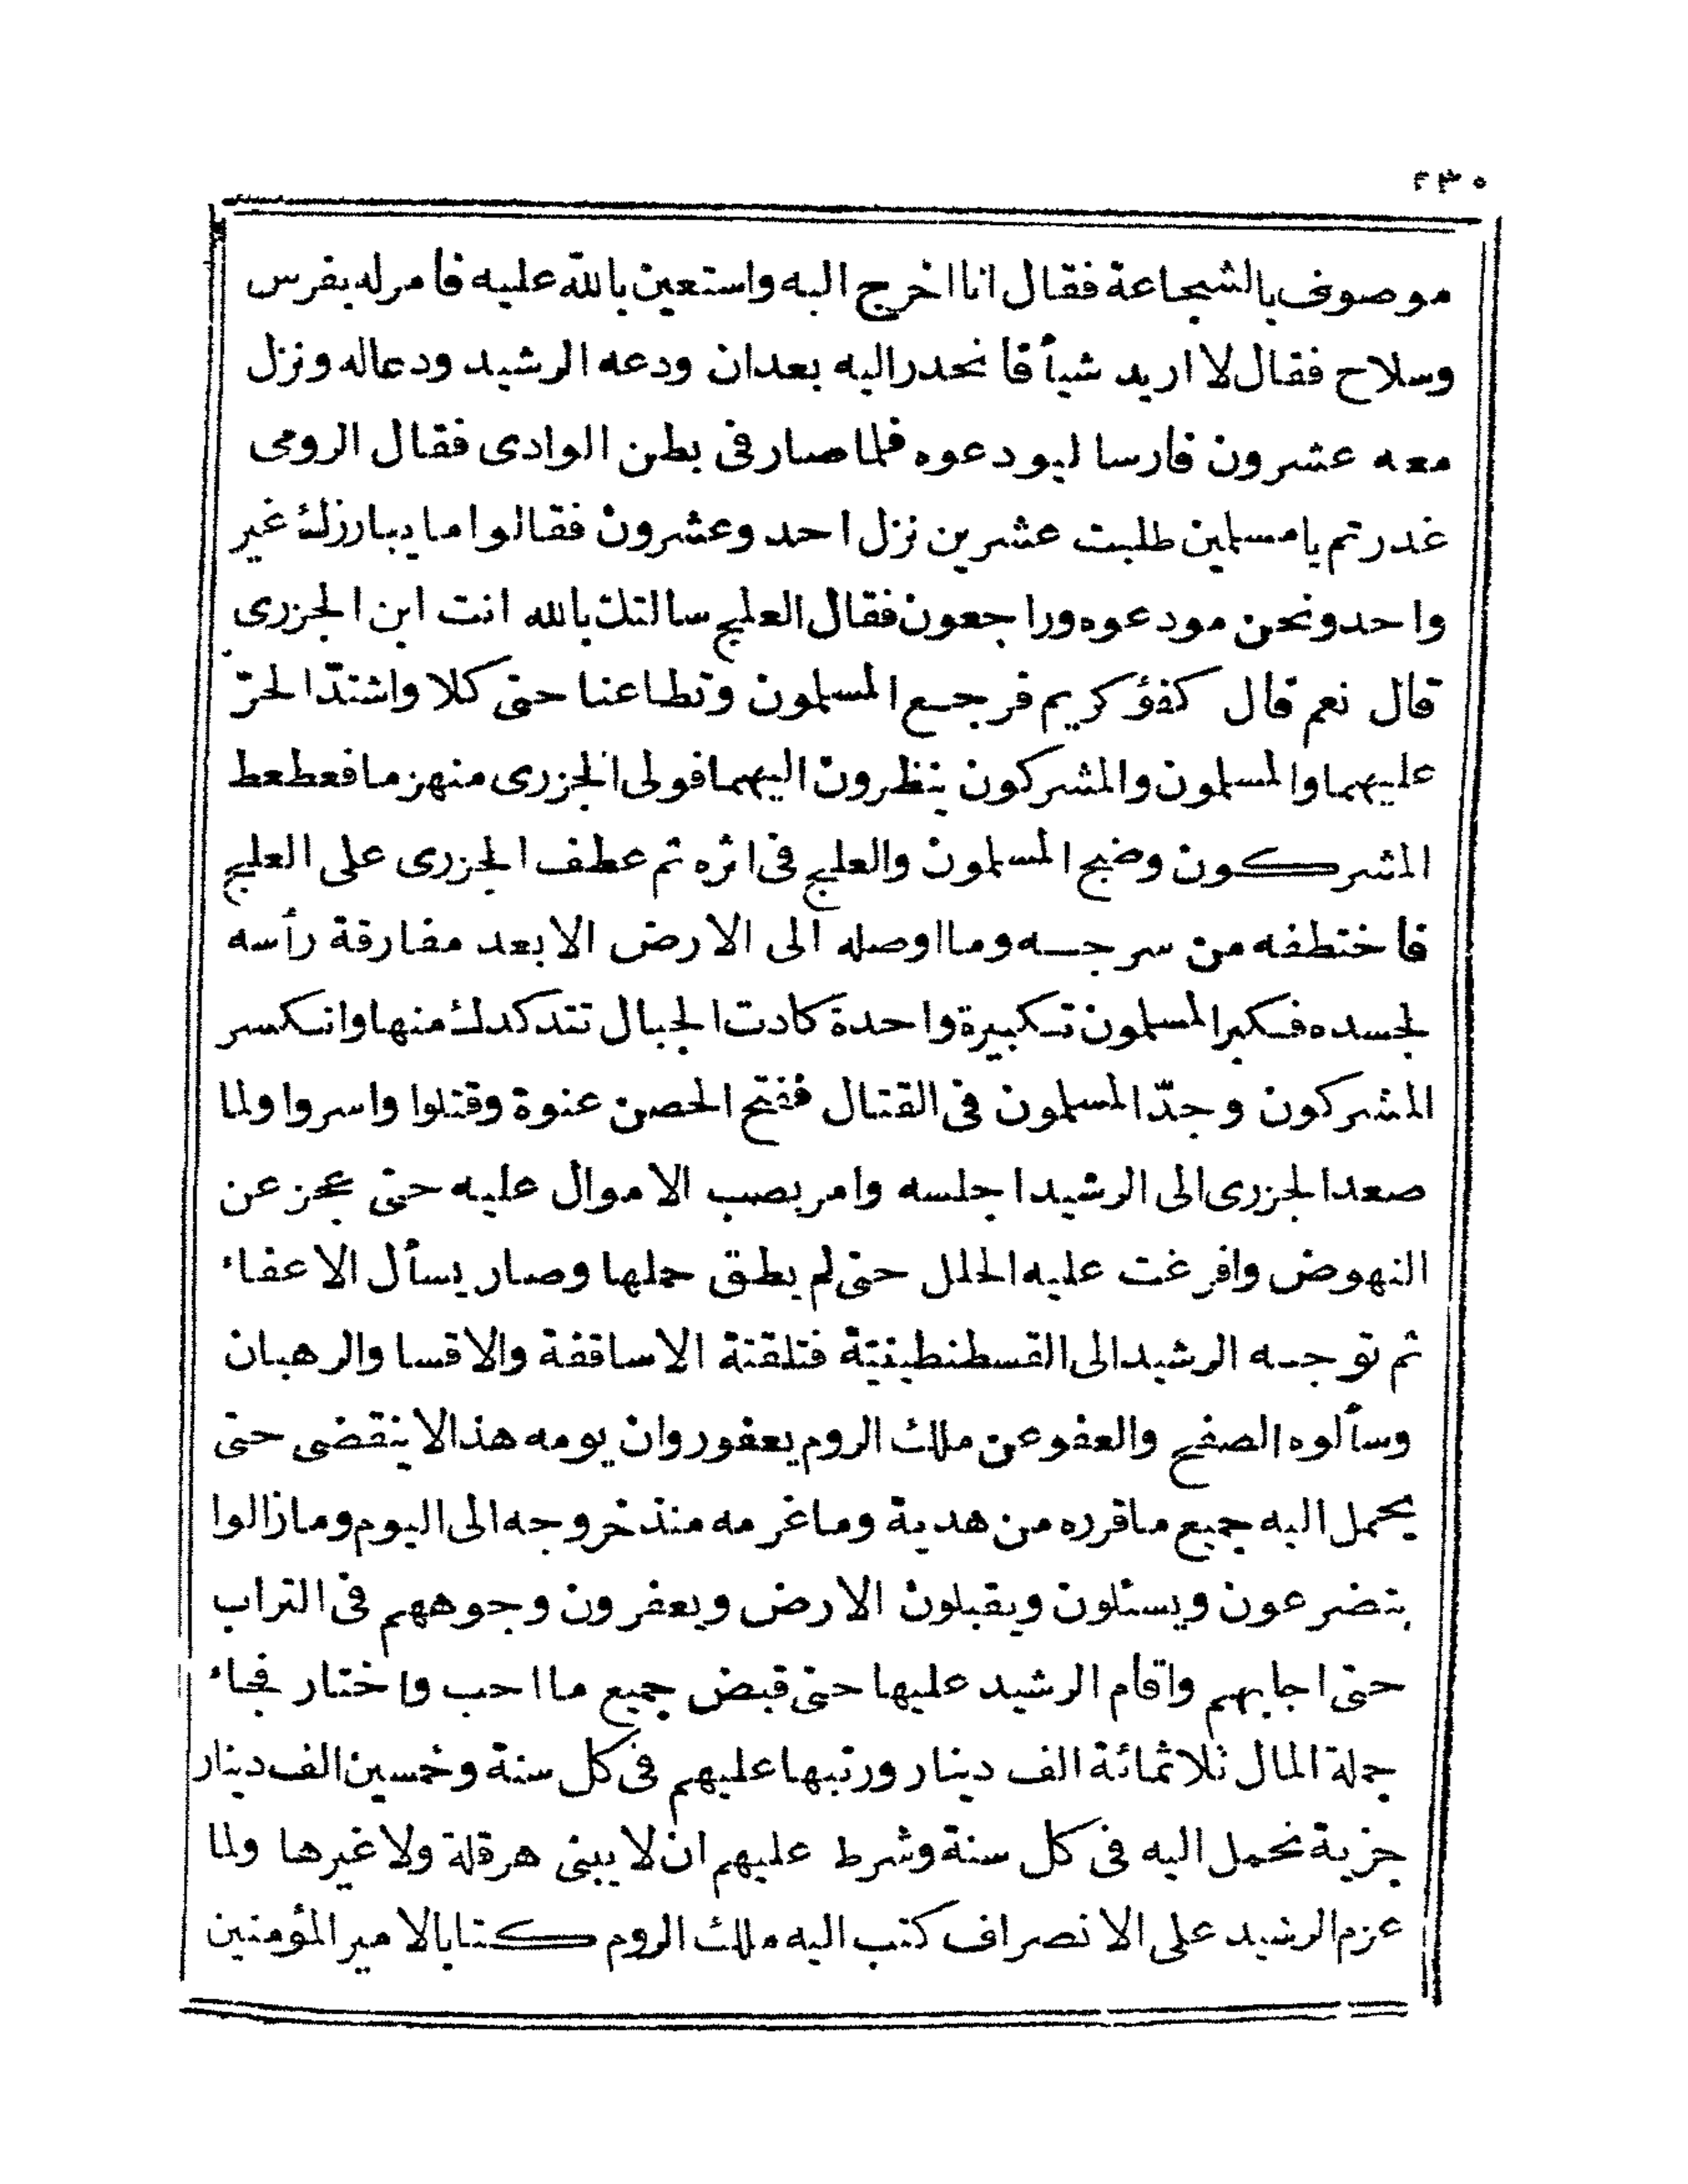 ٢٣٠
موصوف بالشجاعة فقال انا اخرج اليه واستعين بالله عليه فامر له بفرس
وسلاح فقال لا اريد شيأ فانحدر اليه بعدان ودعه الرشيد ودعاله ونزل
معه عشرون فارسا ليودعوه فلما صار فى بطن الوادى فقال الرومى
غدرتم يا مسلمين طلبت عشرين نزل احد وعشرون فقالوا ما يبارزك غير
واحد ونحن مودعوه وراجعون فقال العلج سالتك بالله انت ابن الجزرى
قال نعم قال كفؤ كريم فرجع المسلمون وتطاعنا حتى كلا واشتدّ الحرّ
عليهما والمسلمون والمشركون ينظرون اليهما فولى الجزرى منهزما فعطعط
المشركون وضج المسلمون والعلج فى اثره ثم عطف الجزرى على العلج
فاختطفه من سرجه وما اوصله الى الارض الا بعد مفارقة رأسه
لجسده فكبر المسلمون تكبيرة واحدة كادت الجبال تتدكدك منها وانكسر
المشركون وجدّ المسلمون فى القتال ففتح الحصن عنوة وقتلوا واسروا ولما
صعد الجزرى الى الرشيد اجلسه وامر بصب الاموال عليه حتى عجز عن
النهوض وافرغت عليه الحلل حتى لم يطق حملها وصار يسأل الاعفاء
ثم توجه الرشيد الى القسطنطينيّة فتلقتة الاساقفة والاقسا والرهبان
وسألوه الصفح والعفو عن ملك الروم يعفور وان يومه هذا لا ينقضى حتى
يحمل اليه جميع ما قرره من هدية وما غرمه منذ خروجه الى اليوم وما زالوا
يتضرعون ويسئلون ويقبلون الارض ويعفرون وجوههم فى التراب
حتى اجابهم واقام الرشيد عليها حتى قبض جميع ما احب واختار فجاء
جملة المال ثلاثمائة الف دينار ورتبها عليهم فى كل سنة وخمسين الف دينار
جزية تحمل اليه فى كل سنة وشرط عليهم ان لا يبنى هرقلة ولا غيرها ولما
عزم الرشيد على الانصراف كتب اليه ملك الروم كتابا لامير المؤمنين